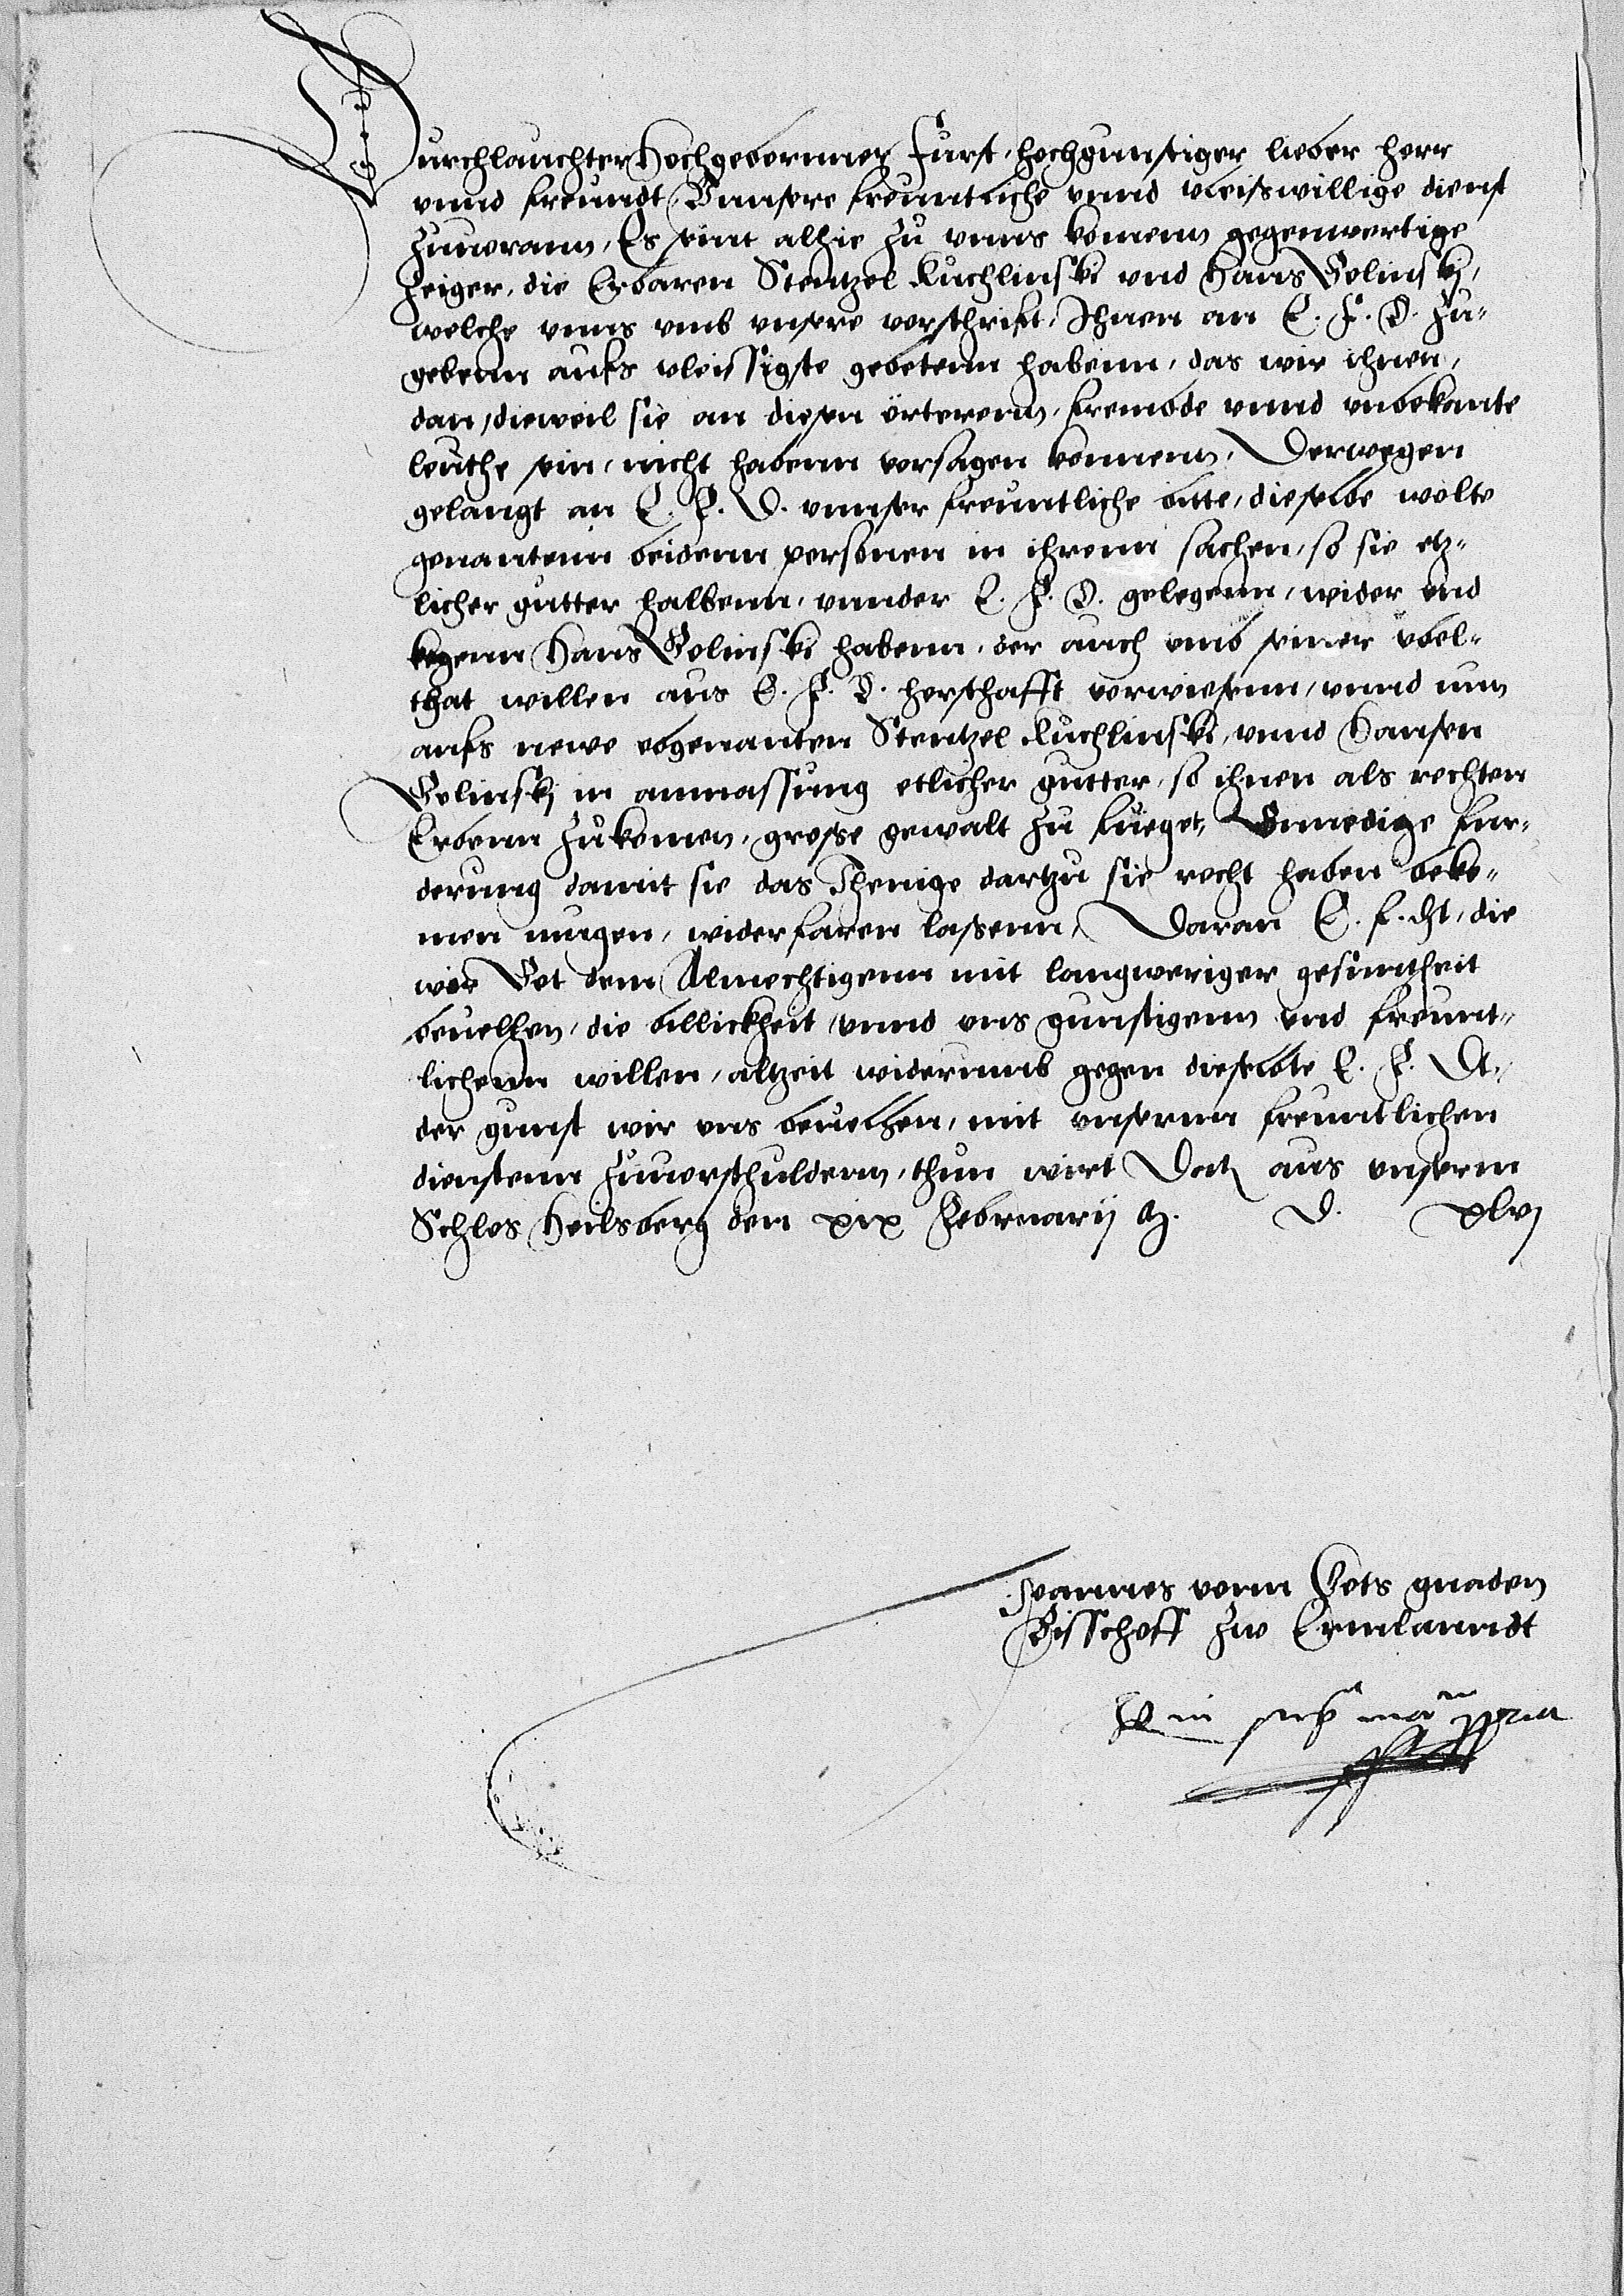 Durchlauchter Hochgeborner Furst, hochgunstiger lieber herr
vnnd freundt Vnnsere freuntliche vnnd vleisswillige dienst
zuuorann, Es seint alhie zu vnns komenn gegenwertige
zeiger, die Erbaren Stentzel Kuchlinski vnd Hans Golinskj,
welche vnns vmb vnsere vorschrift, Ihnen an E. F. D. zu„
gebenn aufs vleissigste gebetenn habenn, das wir ihnen,
dan, dieweil sie an diesen örterenn, frembde vnnd vnbekante
leuthe sein, nicht habenn vorsagen konnenn, Derwegen
gelangt an E. F. D. vnnser freuntliche bitte, dieselbe wolte
genantenn beidenn personen in ihrenn sachen, so sie etz„
licher gutter halbenn, vnnder E. F. D. gelegenn, wider vnd
kegenn Hans Golinski habenn, der auch vmb seiner vbel„
that willen aus E. F. D. herschafft vorwiesenn, vnnd nun
aufs newe obgenanten Stentzel Kuchlinski, vnnd Hansen
Golinskj in anmassung etlicher gutter, so ihnen als rechten
Erbenn zukomen, grosse gewalt zu fueget, Gnnedige fur„
derung damit sie das Jhenige dartzu sie recht haben beko„
men mugen, widerfaren lassenn, Daran E. f. dt, die
wir Got dem Almechtigenn mit langweriger gesuntheit
beuelhen, die billickheit, vnnd vns gunstigenn vnd freunt„
lichenn willen, altzeit widerumb gegen dieselbte E. F. Dt.
der gunst wir vns beuelhen, mit vnsernn freuntlichen
dienstenn zuuorschuldenn, thun wirt Datj aus vnserm
Schlos Heilsberg den xix Februarij A. D. xlvj
Joannes vonn Gots gnaden
Bisschoff zw Ermlanndt